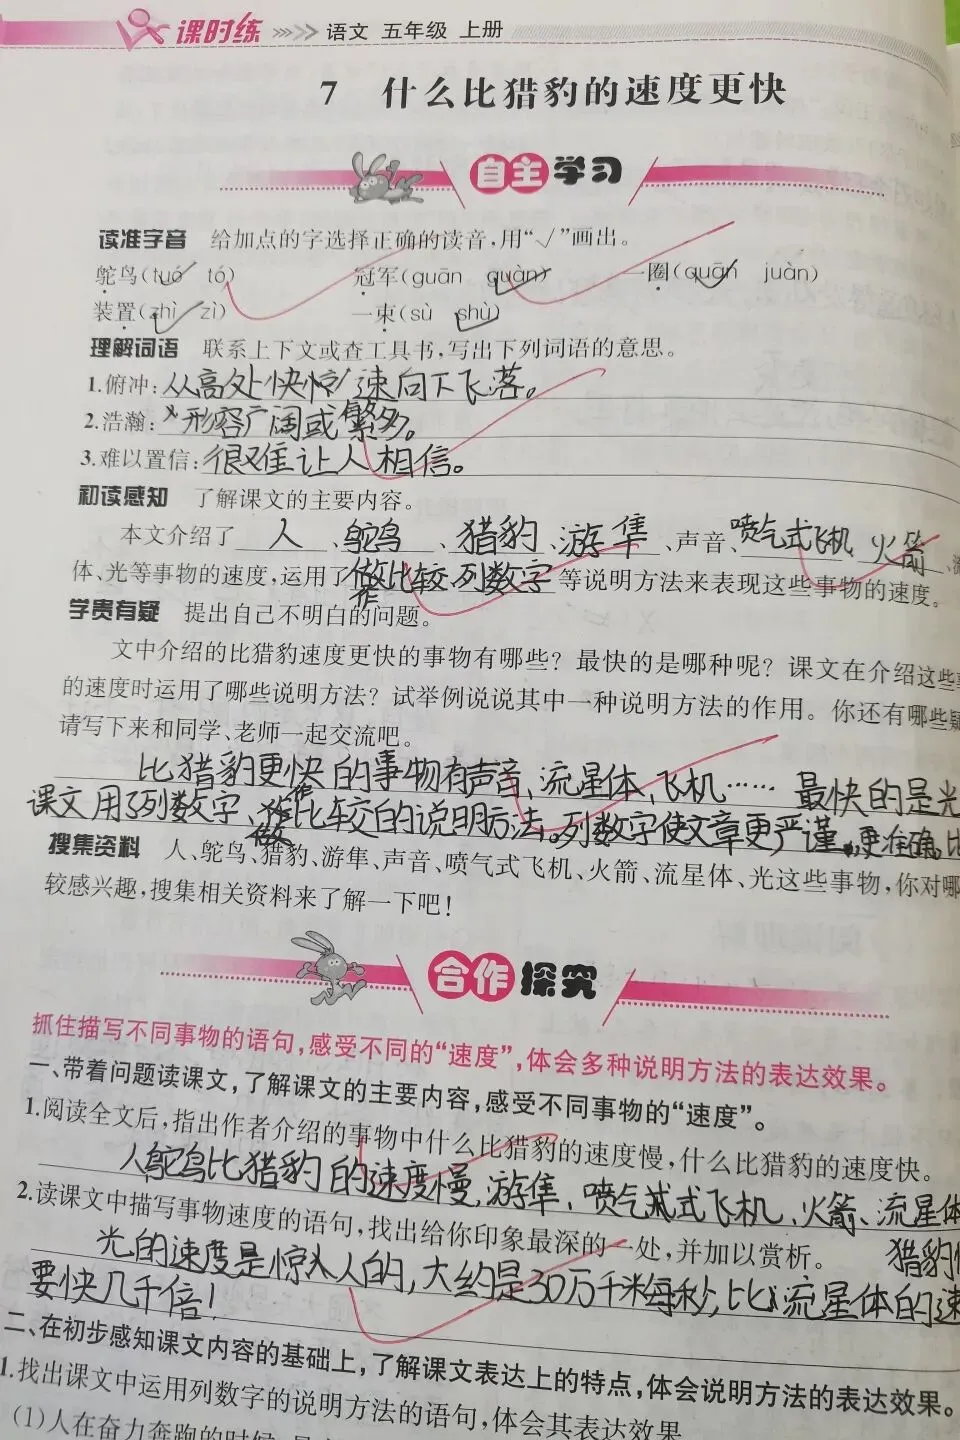 课时练 语文 五年级 上册
7 什么比猎豹的速度更快
自主学习
读准字音 给加点的字选择正确的读音,用“√”画出。
鸵鸟(tuó tó) 冠军(guān guàn) 一圈(quān juàn)
装置(zhì zì) 一束(sù shù)
理解词语 联系上下文或查工具书,写出下列词语的意思。
1.俯冲:从高处快速向下飞落。
2.浩瀚:形容广阔或繁多。
3.难以置信:很难让人相信。
初读感知 了解课文的主要内容。
本文介绍了 人、鸵鸟、猎豹、游隼、声音、喷气式飞机 火箭、
体、光等事物的速度,运用了做比较 列数字等说明方法来表现这些事物的速度。
作
学贵有疑 提出自己不明白的问题。
文中介绍的比猎豹速度更快的事物有哪些?最快的是哪种呢?课文在介绍这些
的速度时运用了哪些说明方法?试举例说说其中一种说明方法的作用。你还有哪些
请写下来和同学、老师一起交流吧。
比猎豹更快的事物有声音、流星体、飞机…… 最快的是光
课文用了列数字、作比较的说明方法。列数字使文章更严谨,更准确。比
做
搜集资料 人、鸵鸟、猎豹、游隼、声音、喷气式飞机、火箭、流星体、光这些事物,你对哪
较感兴趣,搜集相关资料来了解一下吧!
合作探究
抓住描写不同事物的语句,感受不同的“速度”,体会多种说明方法的表达效果。
一、带着问题读课文,了解课文的主要内容,感受不同事物的“速度”。
1.阅读全文后,指出作者介绍的事物中什么比猎豹的速度慢,什么比猎豹的速度快。
人鸵鸟比猎豹的速度慢,游隼、喷气式飞机、火箭、流星体
2.读课文中描写事物速度的语句,找出给你印象最深的一处,并加以赏析。 猎豹
光的速度是惊人的,大约是30万千米每秒,比流星体的速
要快几千倍!
二、在初步感知课文内容的基础上,了解课文表达上的特点,体会说明方法的表达效果。
1.找出课文中运用列数字的说明方法的语句,体会其表达效果
(1)人在奋力奔跑的时候